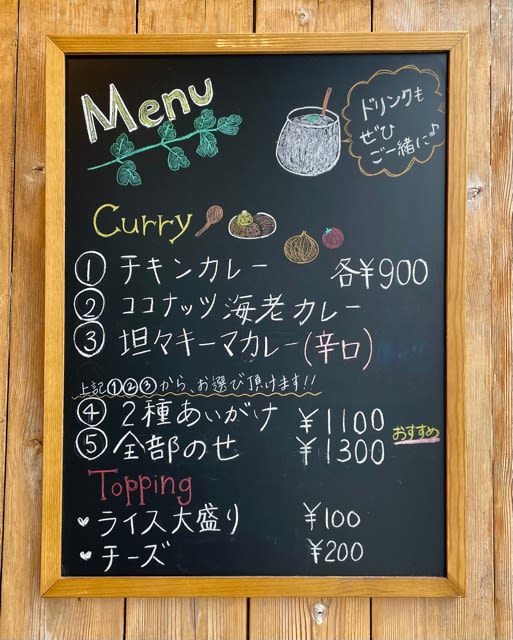 Menu
ドリンクも
ぜひ
ご一緒に♪
Curry
① チキンカレー 各¥900
② ココナッツ海老カレー
③ 坦々キーマカレー(辛口)
上記①②③から、お選び頂けます!!
④ 2種あいがけ ¥1100
⑤ 全部のせ ¥1300 おすすめ
Topping
♥ ライス大盛り ¥100
♥ チーズ ¥200